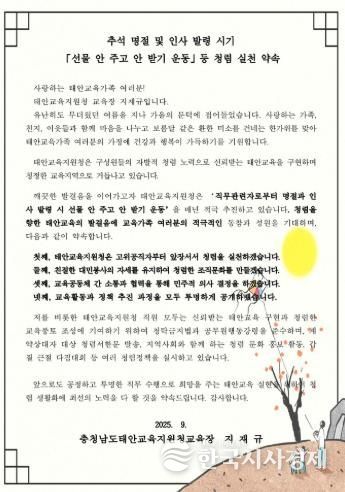 추석 명절 및 인사 발령 시기
「선물 안 주고 안 받기 운동」 등 청렴 실천 약속
사랑하는 태안교육가족 여러분!
태안교육지원청 교육장 지재규입니다.
유난히도 무더웠던 여름을 지나 가을의 문턱에 접어들었습니다. 사랑하는 가족,
친지, 이웃들과 함께 마음을 나누고 보름달 같은 환한 미소를 건네는 한가위를 맞아
태안교육가족 여러분의 가정에 건강과 행복이 가득하기를 기원합니다.
태안교육지원청은 구성원들의 자발적 청렴 노력으로 신뢰받는 태안교육을 구현하며
청정한 교육지역으로 거듭나고 있습니다.
깨끗한 발걸음을 이어가고자 태안교육지원청은 '직무관련자로부터 명절과 인
사 발령 시 선물 안 주고 안 받기 운동'을 매년 적극 추진하고 있습니다. 청렴을
향한 태안교육의 발걸음에 교육가족 여러분의 적극적인 동참과 성원을 기대하며,
다음과 같이 약속합니다.
첫째, 태안교육지원청은 고위공직자부터 앞장서서 청렴을 실천하겠습니다.
둘째, 친절한 대민봉사의 자세를 유지하여 청렴한 조직문화를 만들겠습니다.
셋째, 교육공동체 간 소통과 협력을 통해 민주적 의사 결정을 하겠습니다.
넷째, 교육활동과 정책 추진 과정을 모두 투명하게 공개하겠습니다.
저를 비롯한 태안교육지원청 직원 모두는 신뢰받는 태안교육 구현과 청렴한
교육풍토 조성에 기여하기 위하여 청탁금지법과 공무원행동강령을 준수하며, 계
약상대자 대상 청렴서한문 발송, 지역사회와 함께 하는 청렴 문화 홍보 활동, 갑
질 근절 다짐대회 등 여러 청렴정책을 실시하고 있습니다.
앞으로도 공정하고 투명한 직무 수행으로 희망을 주는 태안교육 실현을 위하여 청
렴 생활화에 최선의 노력을 다 할 것을 약속드립니다. 감사합니다.
2025. 9.
충청남도태안교육지원청교육장 지 재 규
한국시사경제